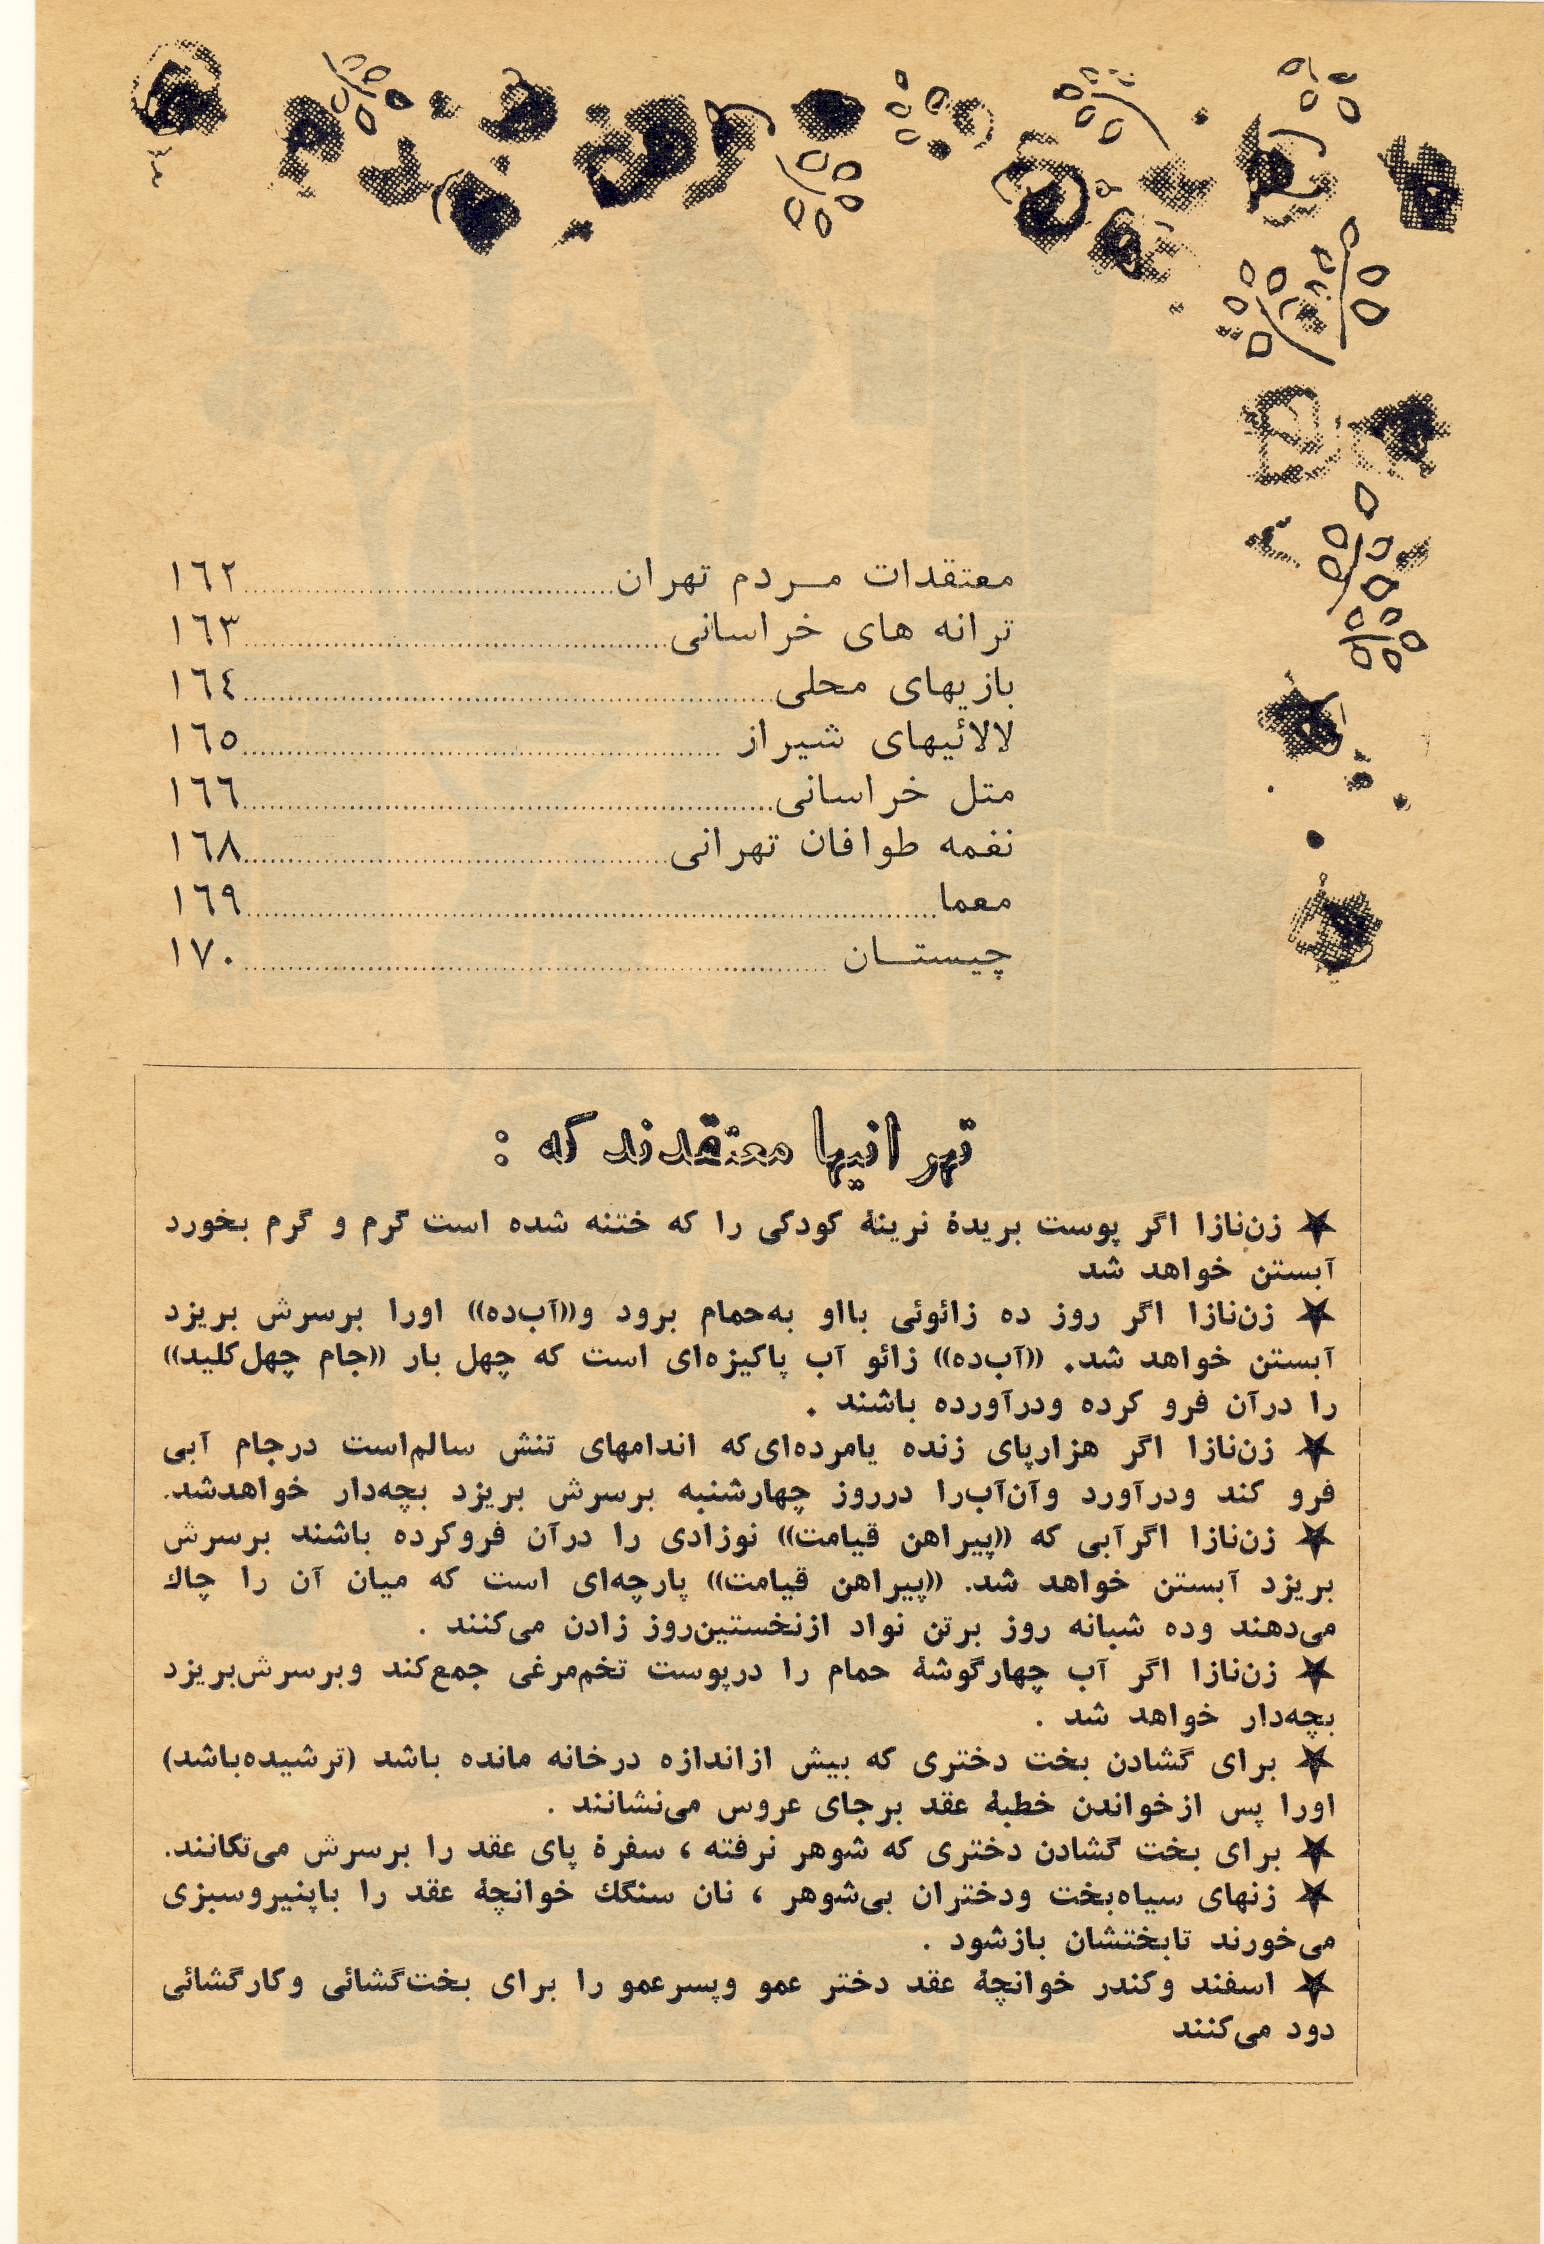 معتقدات مـردم تهران ........ ۱٦۲
ترانه های خراسانی ........ ۱٦۳
بازیهای محلی ........ ۱٦٤
لالائیهای شیراز ........ ۱٦٥
متل خراسانی ........ ۱٦٦
نغمه طوافان تهرانی ........ ۱٦۸
معما ........ ۱٦۹
چیستـان ........ ۱۷۰
تهرانیها معتقدند که :
★ زن‌نازا اگر پوست بریدهٔ نرینهٔ کودکی را که ختنه شده است گرم و گرم بخورد
آبستن خواهد شد
★ زن‌نازا اگر روز ده زائوئی بااو به‌حمام برود و«آب‌ده» اورا برسرش بریزد
آبستن خواهد شد. «آب‌ده» زائو آب پاکیزه‌ای است که چهل بار «جام چهل‌کلید»
را درآن فرو کرده ودرآورده باشند .
★ زن‌نازا اگر هزارپای زنده یامرده‌ای‌که اندامهای تنش سالم‌است درجام آبی
فرو کند ودرآورد وآن‌آب‌را درروز چهارشنبه برسرش بریزد بچه‌دار خواهدشد.
★ زن‌نازا اگرآبی که «پیراهن قیامت» نوزادی را درآن فروکرده باشند برسرش
بریزد آبستن خواهد شد. «پیراهن قیامت» پارچه‌ای است که میان آن را چاك
می‌دهند وده شبانه روز برتن نواد ازنخستین‌روز زادن می‌کنند .
★ زن‌نازا اگر آب چهارگوشهٔ حمام را درپوست تخم‌مرغی جمع‌کند وبرسرش‌بریزد
بچه‌دار خواهد شد .
★ برای گشادن بخت دختری که بیش ازاندازه درخانه مانده باشد (ترشیده‌باشد)
اورا پس ازخواندن خطبهٔ عقد برجای عروس می‌نشانند .
★ برای بخت گشادن دختری که شوهر نرفته ، سفرهٔ پای عقد را برسرش می‌تکانند.
★ زنهای سیاه‌بخت ودختران بی‌شوهر ، نان سنگك خوانچهٔ عقد را باپنیروسبزی
می‌خورند تابختشان بازشود .
★ اسفند وکندر خوانچهٔ عقد دختر عمو وپسرعمو را برای بخت‌گشائی وکارگشائی
دود می‌کنند